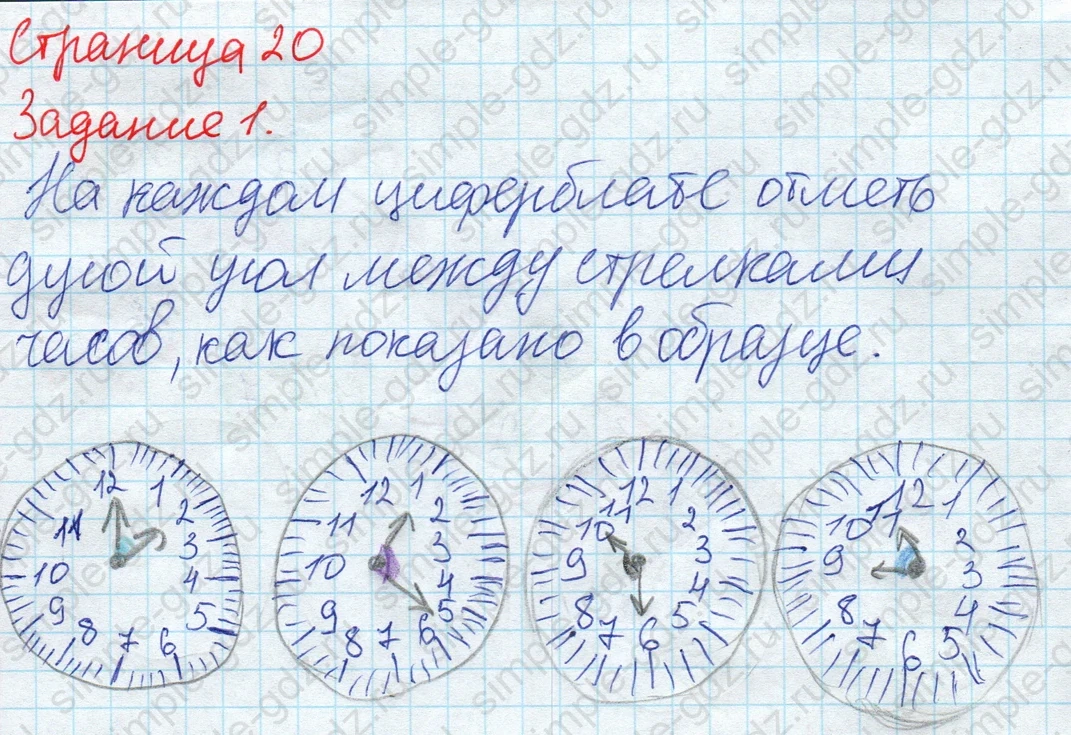 Страница 20
Задание 1.
На каждом циферблате отметь
дугой угол между стрелками
часов, как показано в образце.
12 1 2 3 4 5 6 7 8 9 10 11
12 1 2 3 4 5 6 7 8 9 10 11
12 1 2 3 4 5 6 7 8 9 10 11
12 1 2 3 4 5 6 7 8 9 10 11
simple-gdz.ru